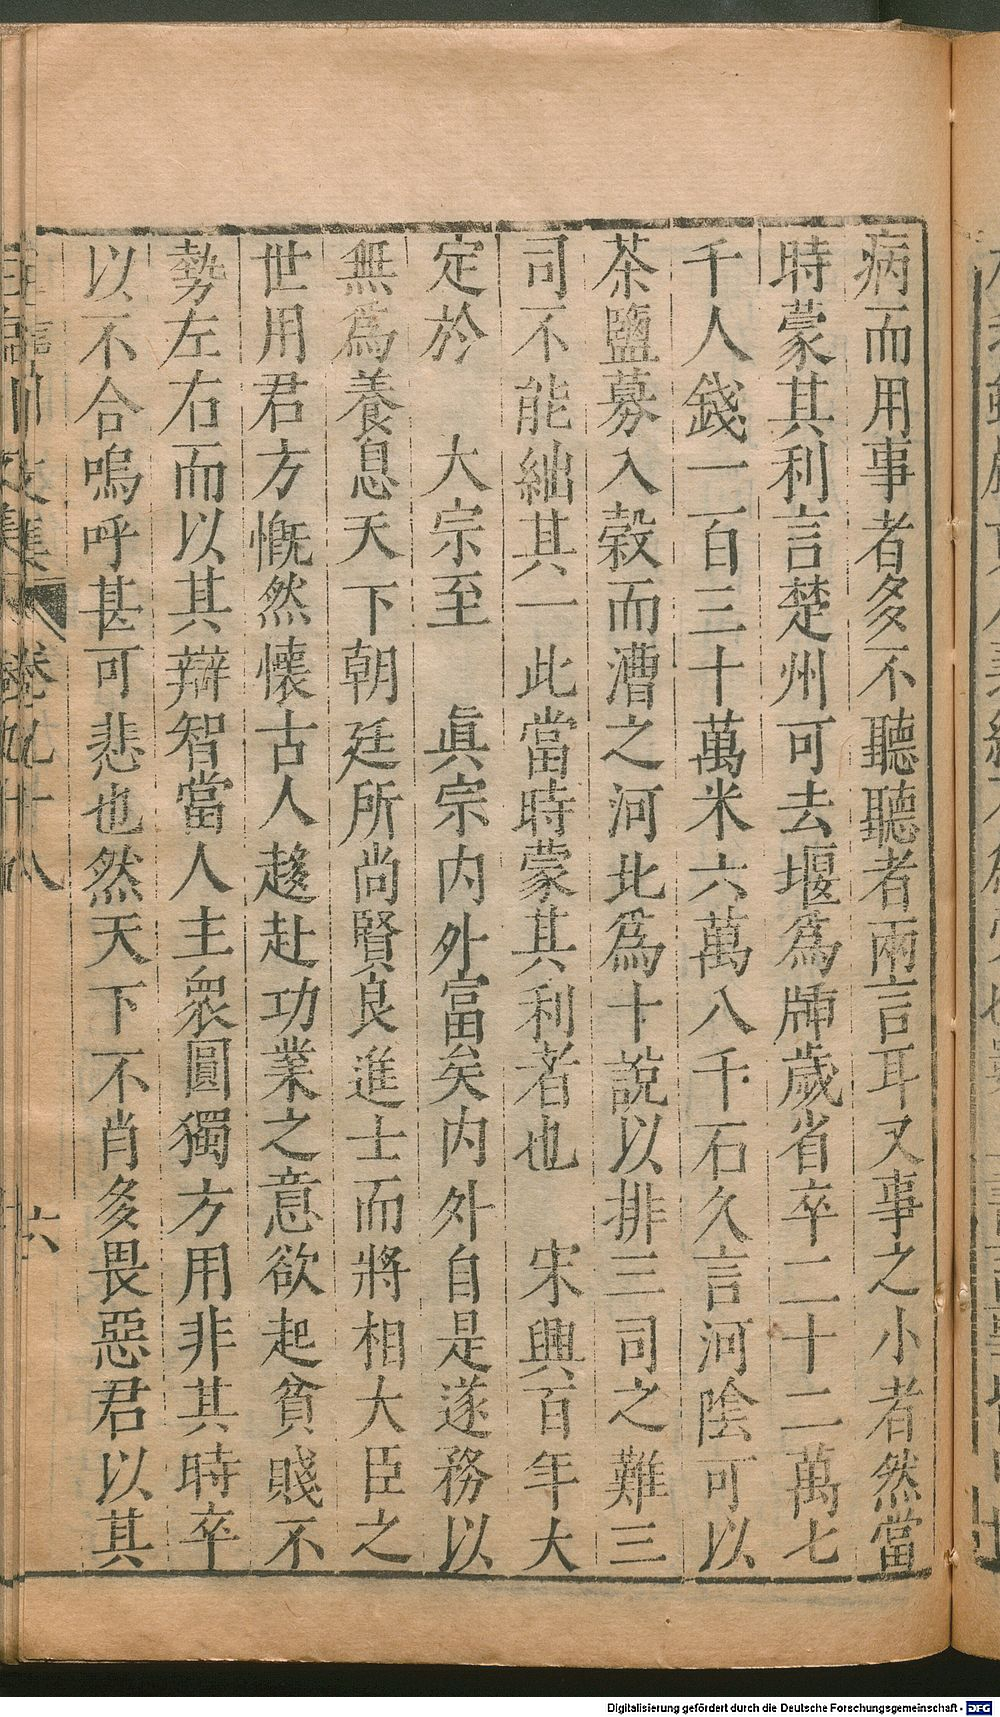 病而用事者多不聽聽者兩言耳又事之小者然當
時蒙其利言楚州可去堰爲牐歲省卒二十二萬七
千人錢一百三十萬米六萬八千石久言河陰可以
茶鹽募入穀而漕之河北爲十說以排三司之難三
司不能絀其一此當時蒙其利者也　宋興百年大
定於　大宗至　眞宗内外富矣内外自是遂務以
無爲養息天下朝廷所尚賢良進士而將相大臣之
世用君方慨然懷古人趍赴功業之意欲起貧賤不
勢左右而以其辯智當人主衆圓獨方用非其時卒
以不合嗚呼甚可悲也然天下不肖多畏惡君以其
六
Digitalisierung gefördert durch die Deutsche Forschungsgemeinschaft - DFG